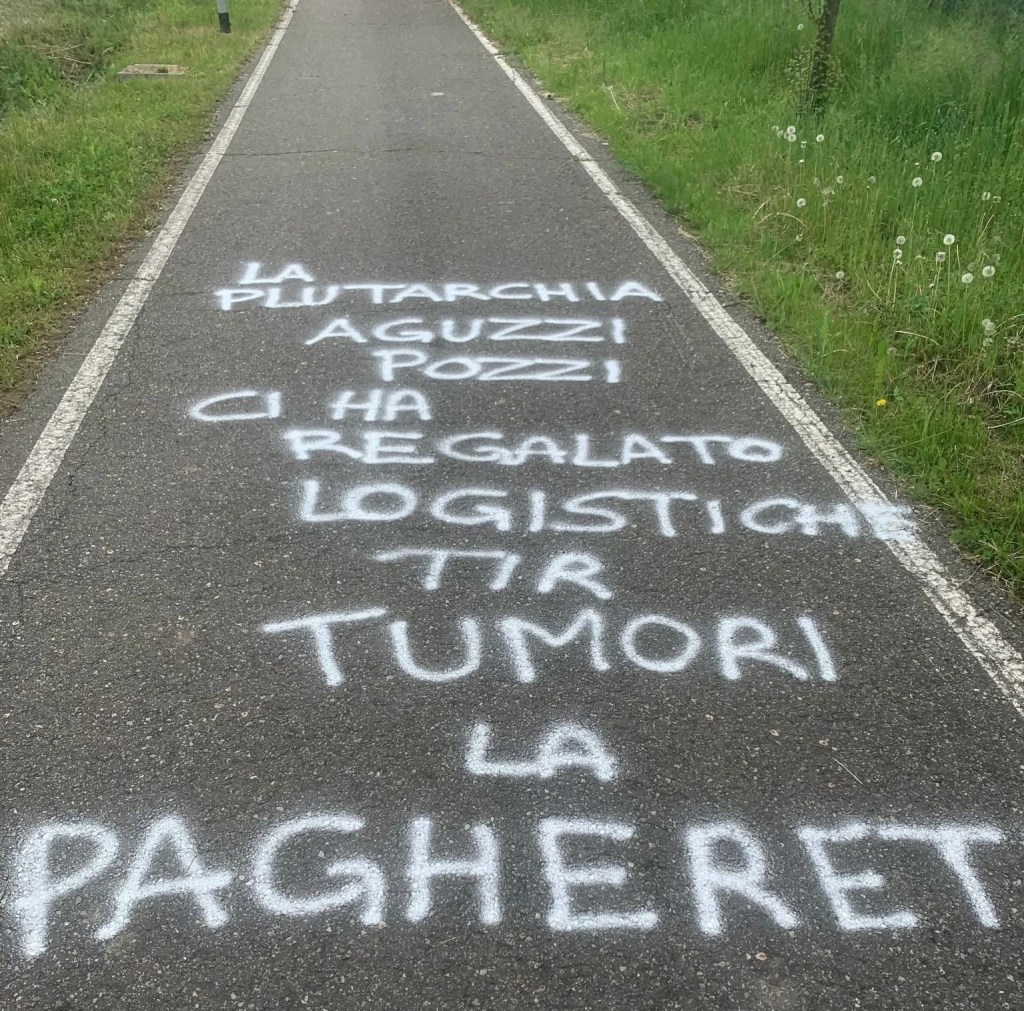 LA
PLUTARCHIA
AGUZZI
POZZI
CI HA
REGALATO
LOGISTICHE
TIR
TUMORI
LA
PAGHERET